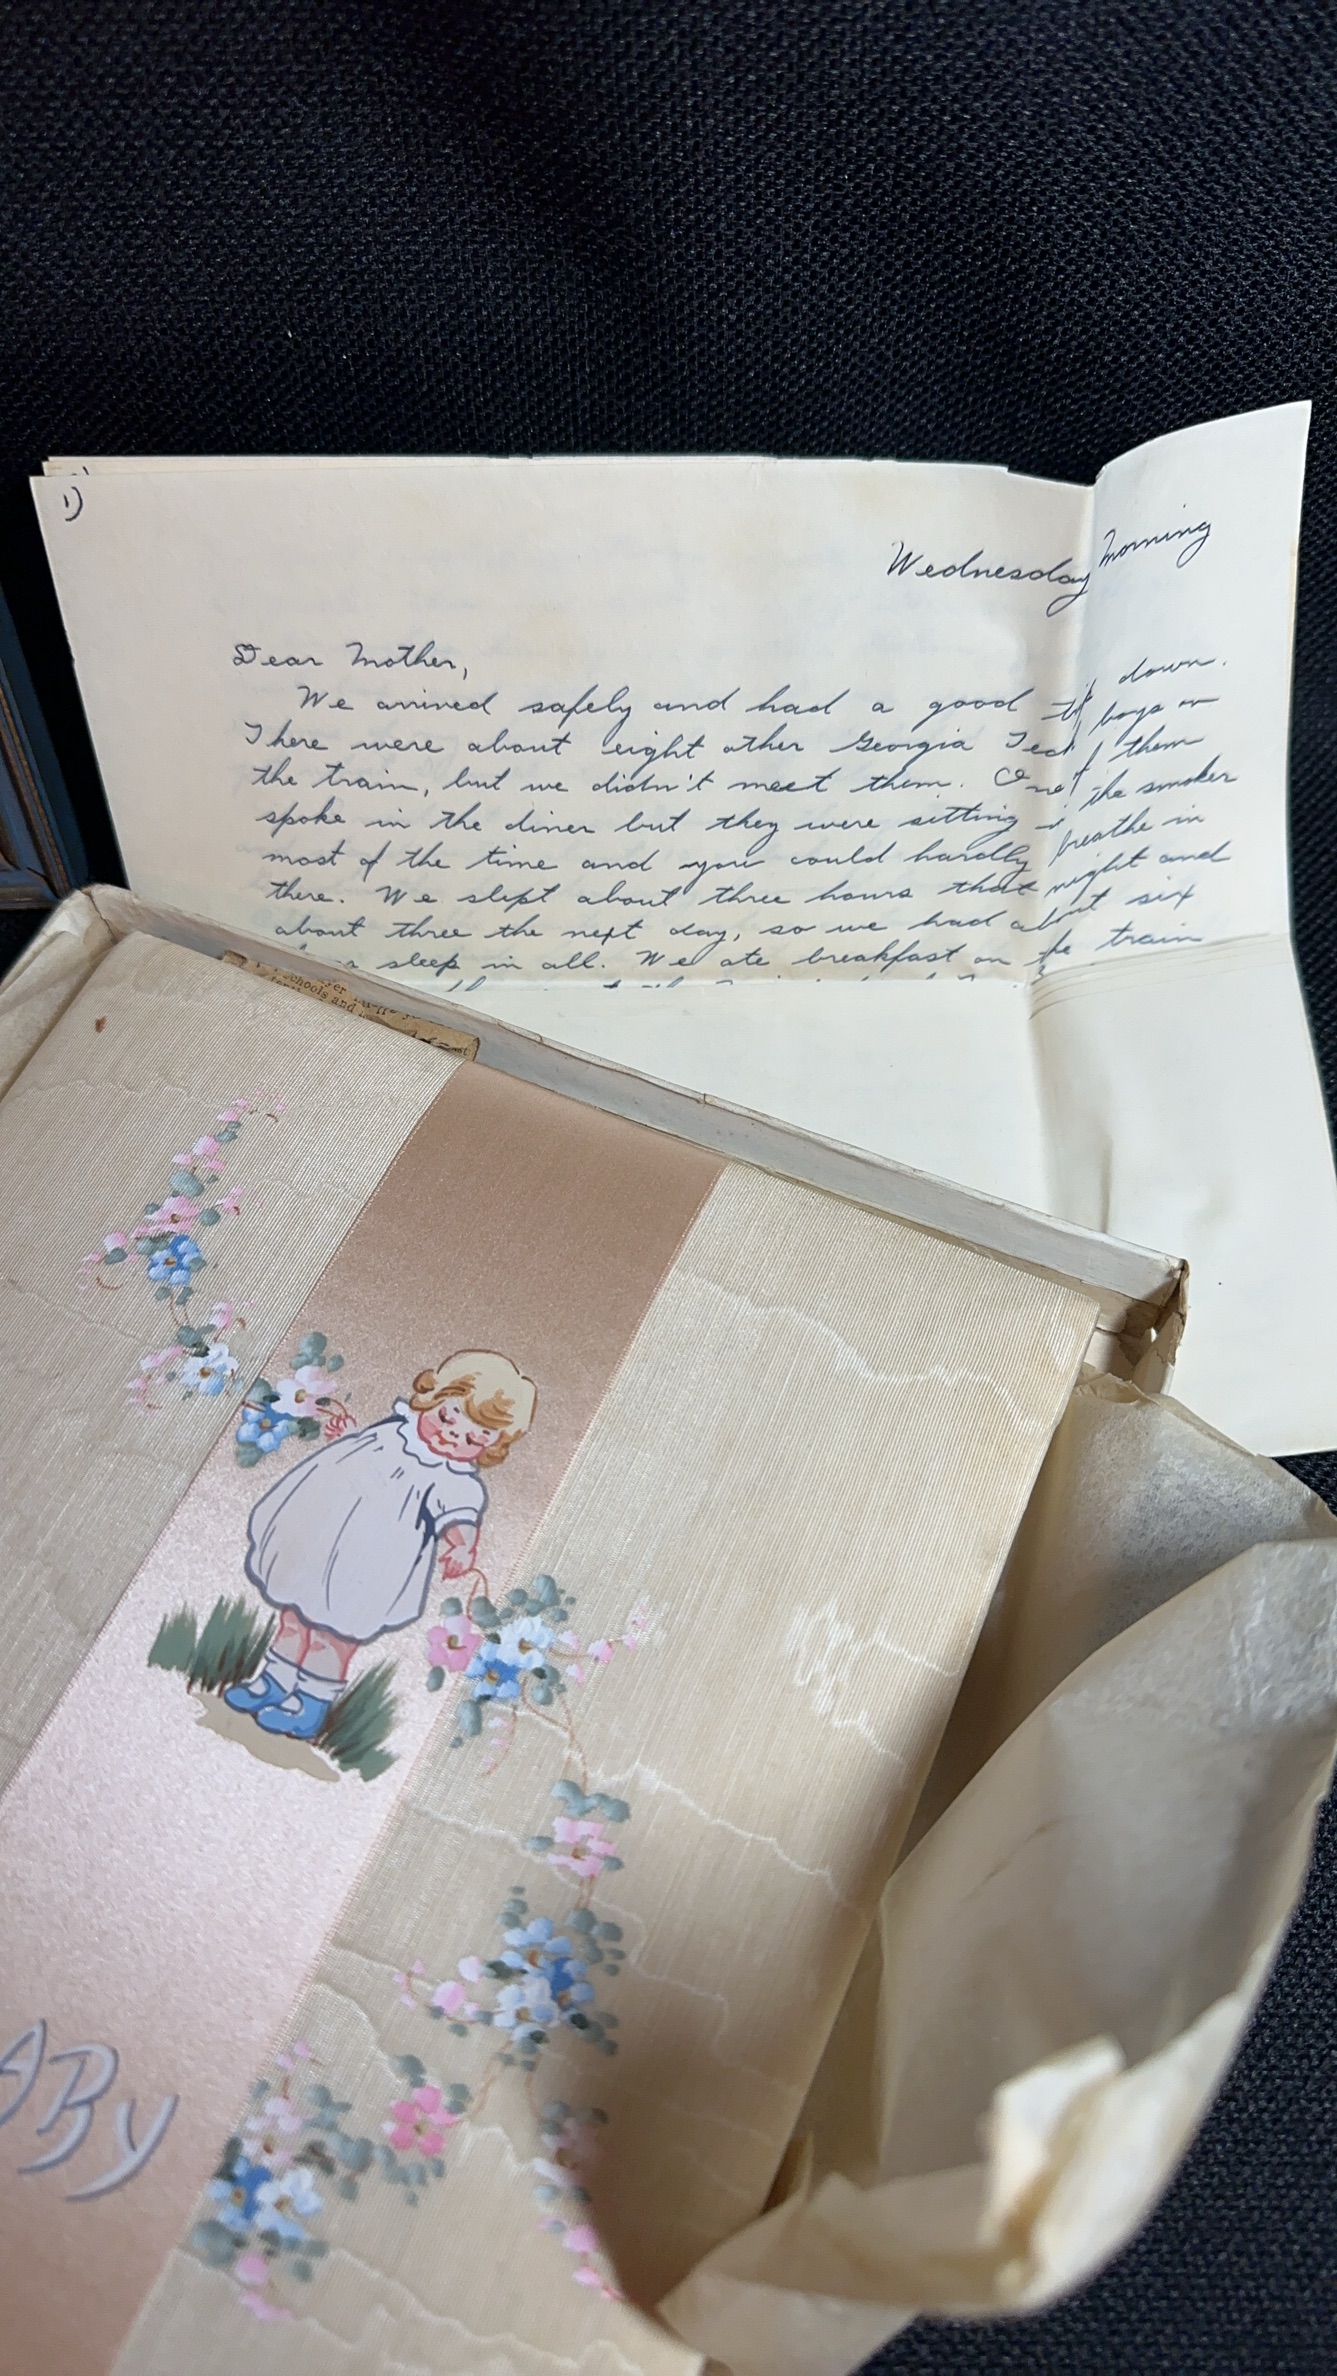 1)
Wednesday Morning
Dear Mother,
We arrived safely and had a good down.
There were about eight other Georgia Tech boys on
the train, but we didn't meet them. One of them
spoke in the diner but they were sitting the smoker
most of the time and you could hardly breathe in
there. We slept about three hours that night and
about three the next day, so we had about six
sleep in all. We ate breakfast on the train
schools and
ABy